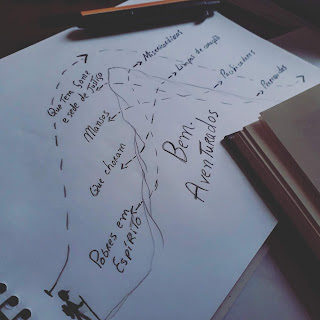 Bem-
Aventurados
Pobres em
Espírito
Que choram
Mansos
Que Tem fome
e sede de Justiça
Misericordiosos
Limpos de coração
Pacificadores
Perseguidos